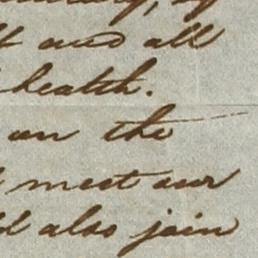 and all
health.
on the
meet our
also join